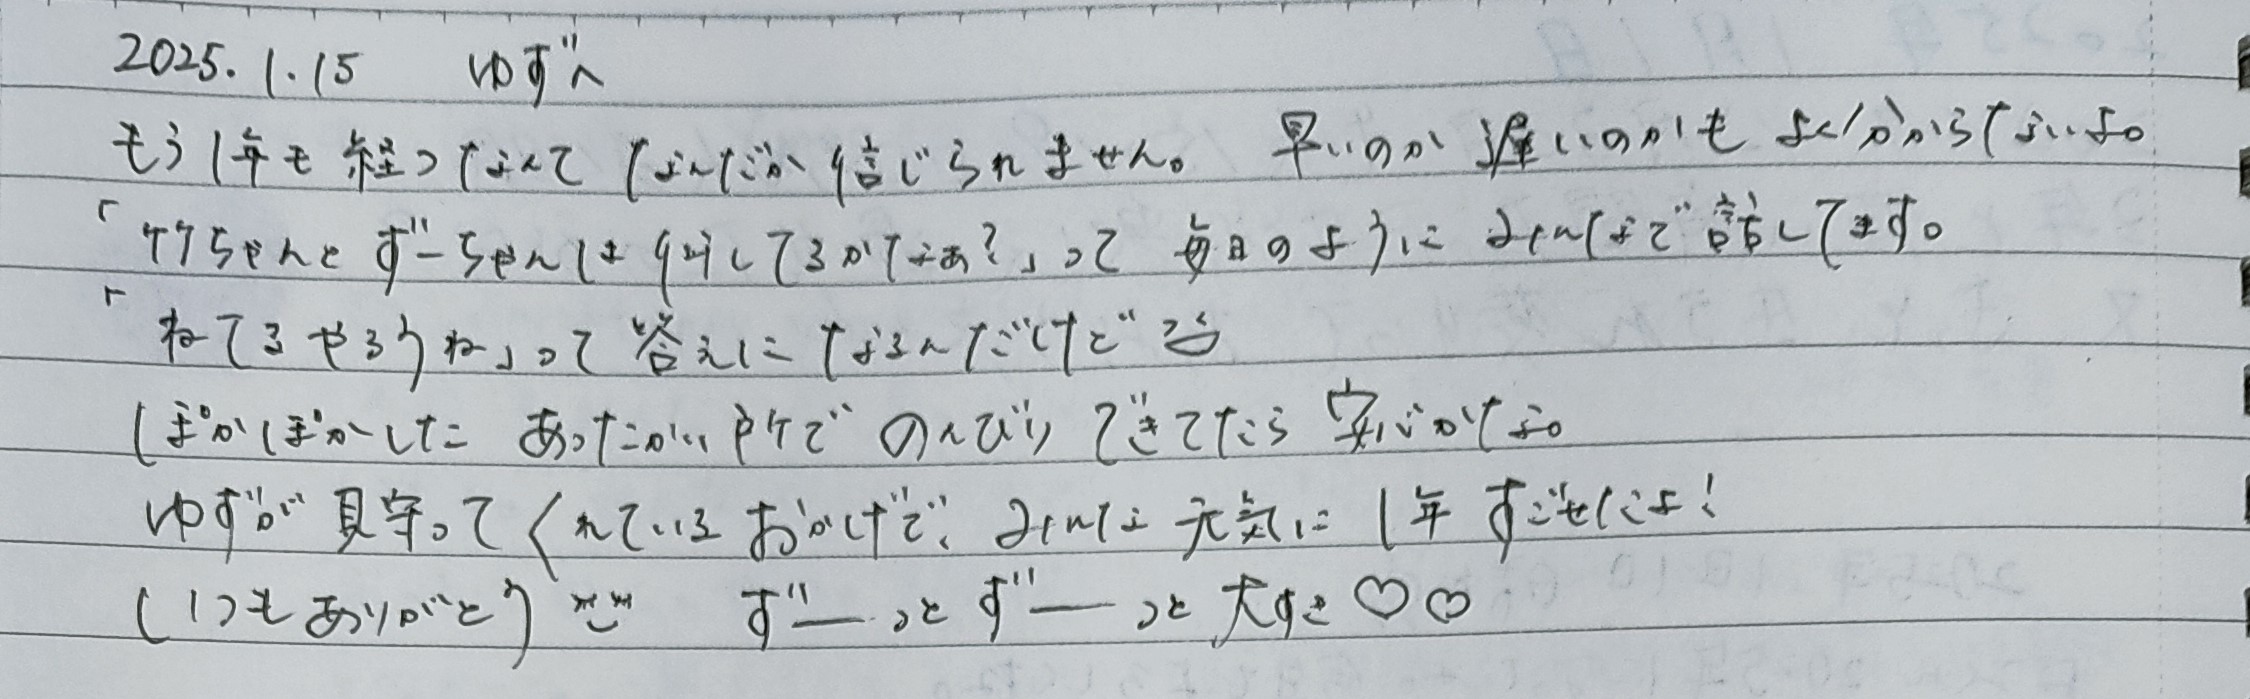 2025.1.15 ゆずへ
もう1年も経つなんてなんだか信じられません。 早いのか遅いのかもよく分からないよ。
「ケケちゃんとずーちゃんは何してるかなぁ?」って毎日のようにみんなで話してます。
「ねてるやろうね」って答えになるんだけど
ぽかぽかした あったかい所でのんびりできてたら安心かな。
ゆずが見守ってくれているおかげで、みんな元気に1年すごせたよ!
いつもありがとう ずーーっとずーーっと大すき♡♡